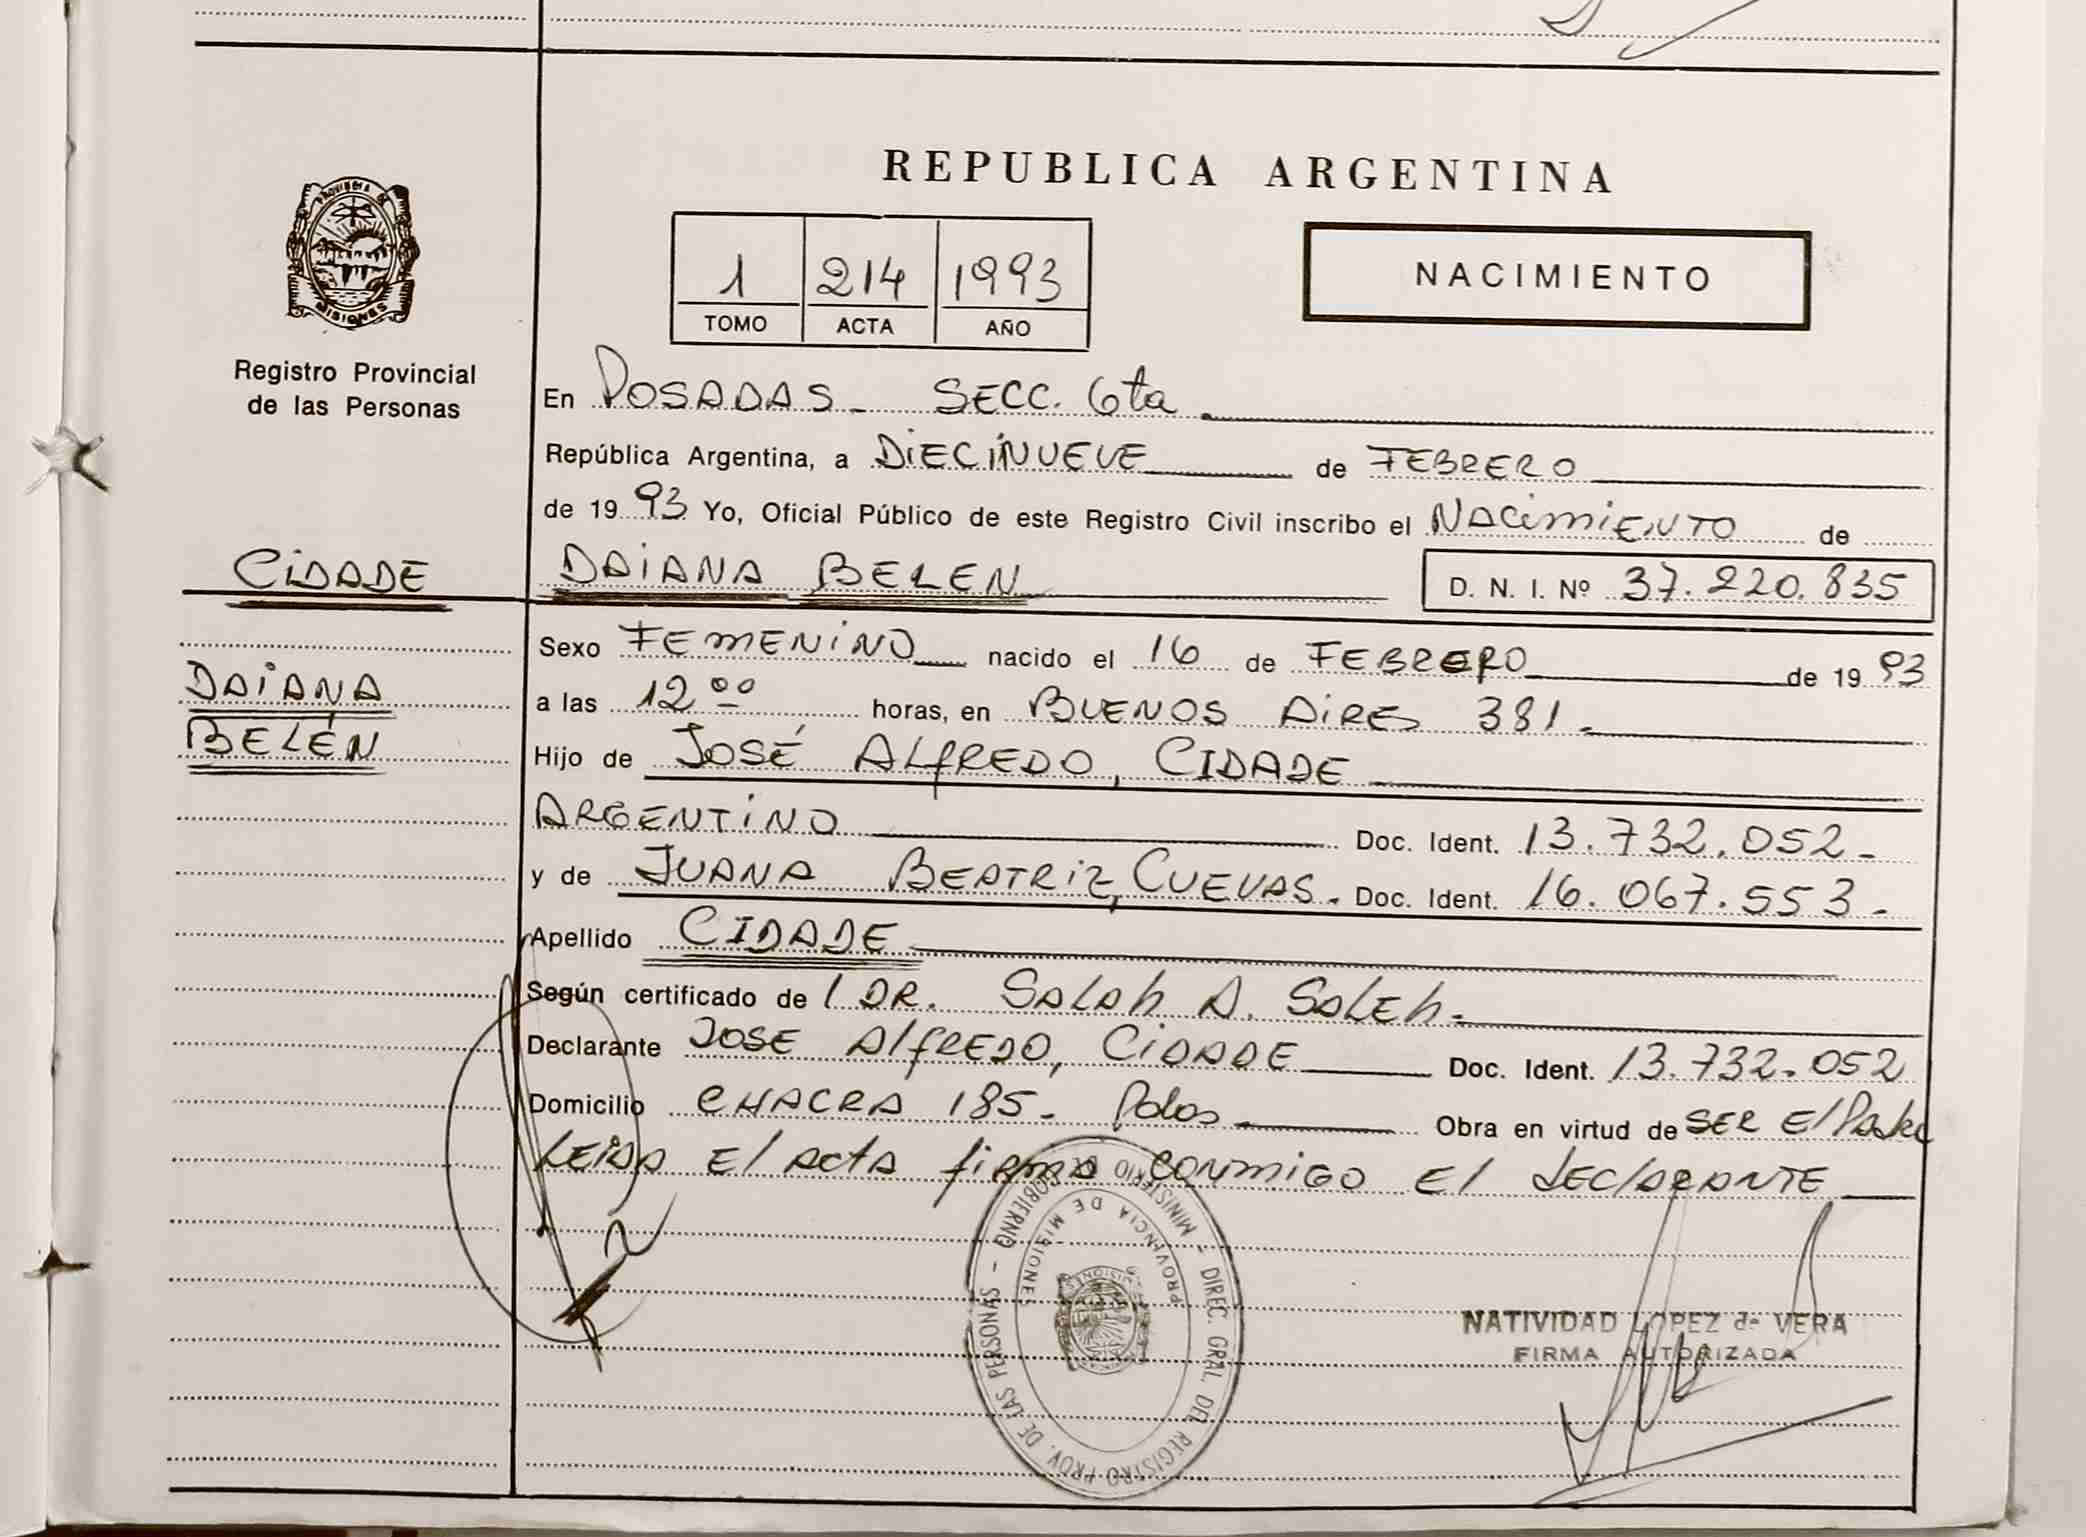 REPUBLICA ARGENTINA
PROVINCIA DE MISIONES
Registro Provincial
de las Personas
1 214 1993
TOMO ACTA AÑO
NACIMIENTO
En POSADAS - SECC. 6ta
República Argentina, a DIECINUEVE de FEBRERO
de 1993 Yo, Oficial Público de este Registro Civil inscribo el NACIMIENTO de
CIDADE
DAIANA BELÉN
DAIANA BELEN
D. N. I. Nº 37.220.835
Sexo FEMENINO nacido el 16 de FEBRERO de 1993
a las 12 00 horas, en BUENOS AIRES 381.
Hijo de JOSÉ ALFREDO, CIDADE
ARGENTINO Doc. Ident. 13.732.052-
y de JUANA BEATRIZ, CUEVAS. Doc. Ident. 16.067.553-
Apellido CIDADE
Según certificado de l DR. SALAH A. SALEH.
Declarante JOSE AlfREDO, CIDADE Doc. Ident. 13.732.052
Domicilio CHACRA 185- Pdas Obra en virtud de SER El Padre
LEIDA El ActA fiRMA CONMIGO El dEClARANTE
MINISTERIO DE GOBIERNO - DIREC. GRAL. DEL REGISTRO PROV. DE LAS PERSONAS -
PROVINCIA DE MISIONES
NATIVIDAD LOPEZ de VERA
FIRMA AUTORIZADA